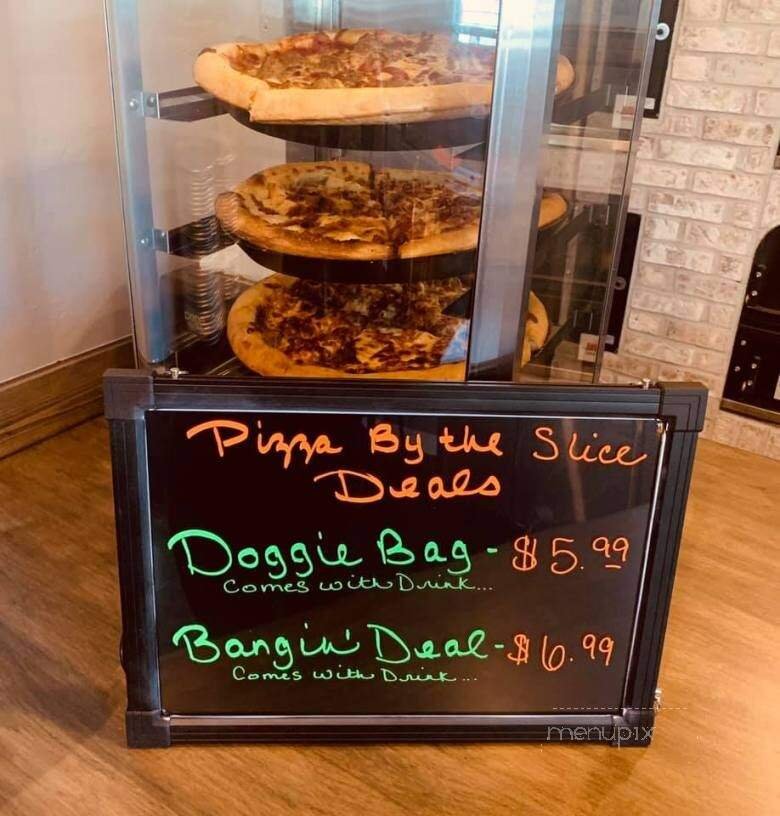 Pizza By the Slice
Deals
Doggie Bag - $5.99
Comes with Drink...
Bangin' Deal - $6.99
Comes with Drink...
menupix